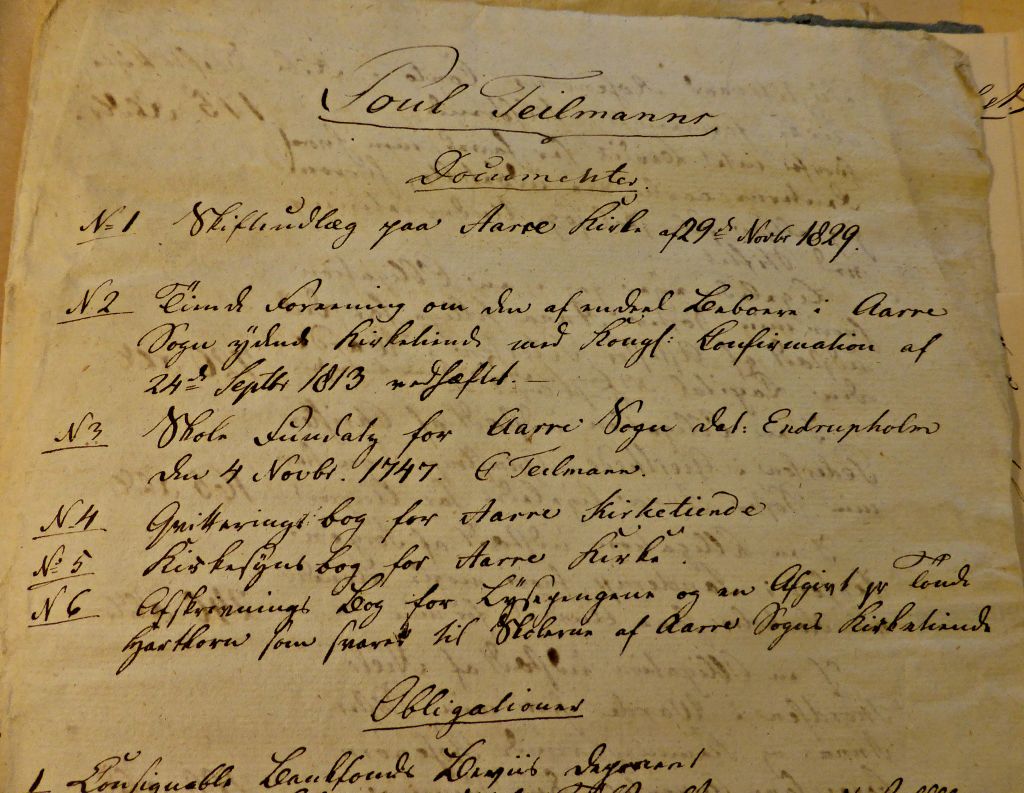 Poul Teilmanns
Documenter.
No 1 Skifteudlæg paa Aarre Kirke af 29de Novbr 1829.
N 2 Tiende Foreening om den af endeel Beboere i Aarre
Sogn ydende Kirketiende med Kongl: Confirmation af
24de Septbr 1813 vedhæftet. –
N 3 Skole Fundatz for Aarre Sogn dat: Endrupholm
den 4 Novbr. 1747. C Teilmann.
N 4 Qvitteringsbog for Aarre Kirketiende
No 5 Kirkesynsbog for Aarre Kirke.
N 6 Afskrivnings Bog for Lysepengene og en Afgivt pr Tönde
Hartkorn som svares til Skolerne af Aarre Sogns Kirketiende
Obligationer
1 Consignable Bankfonds Beviis